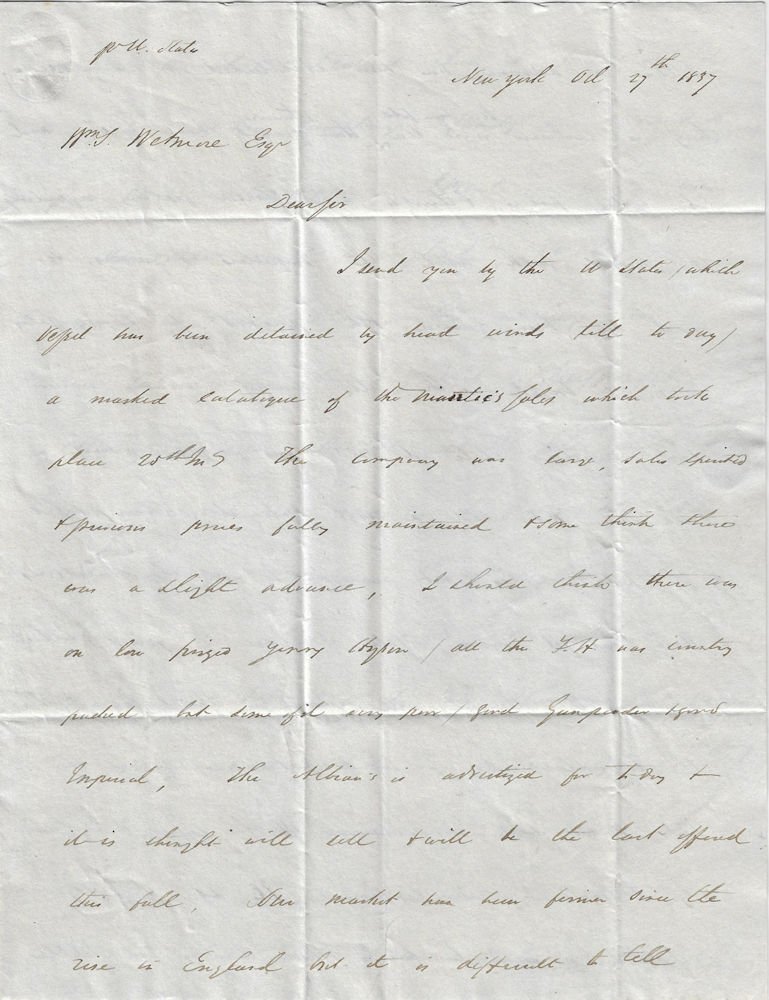 pr U. States
New York Oct 27th 1837
Wm S. Wetmore Esqr
Dear Sir
I send you by the U States (which
vessel has been detained by head winds till to day)
a marked catalogue of the Niantic's sales which took
place 25th The company was large, sales spirited
& previous prices fully maintained & some think there
was a slight advance, I should think there was
on low priced Young Hyson (all the Y.H was country
packed but some of it very poor) good Gunpowder & good
Imperial, The Albion's is advertized for to day &
it is thought will sell & will be the last offered
this fall. Our market has been firmer since the
rise in England but it is difficult to tell